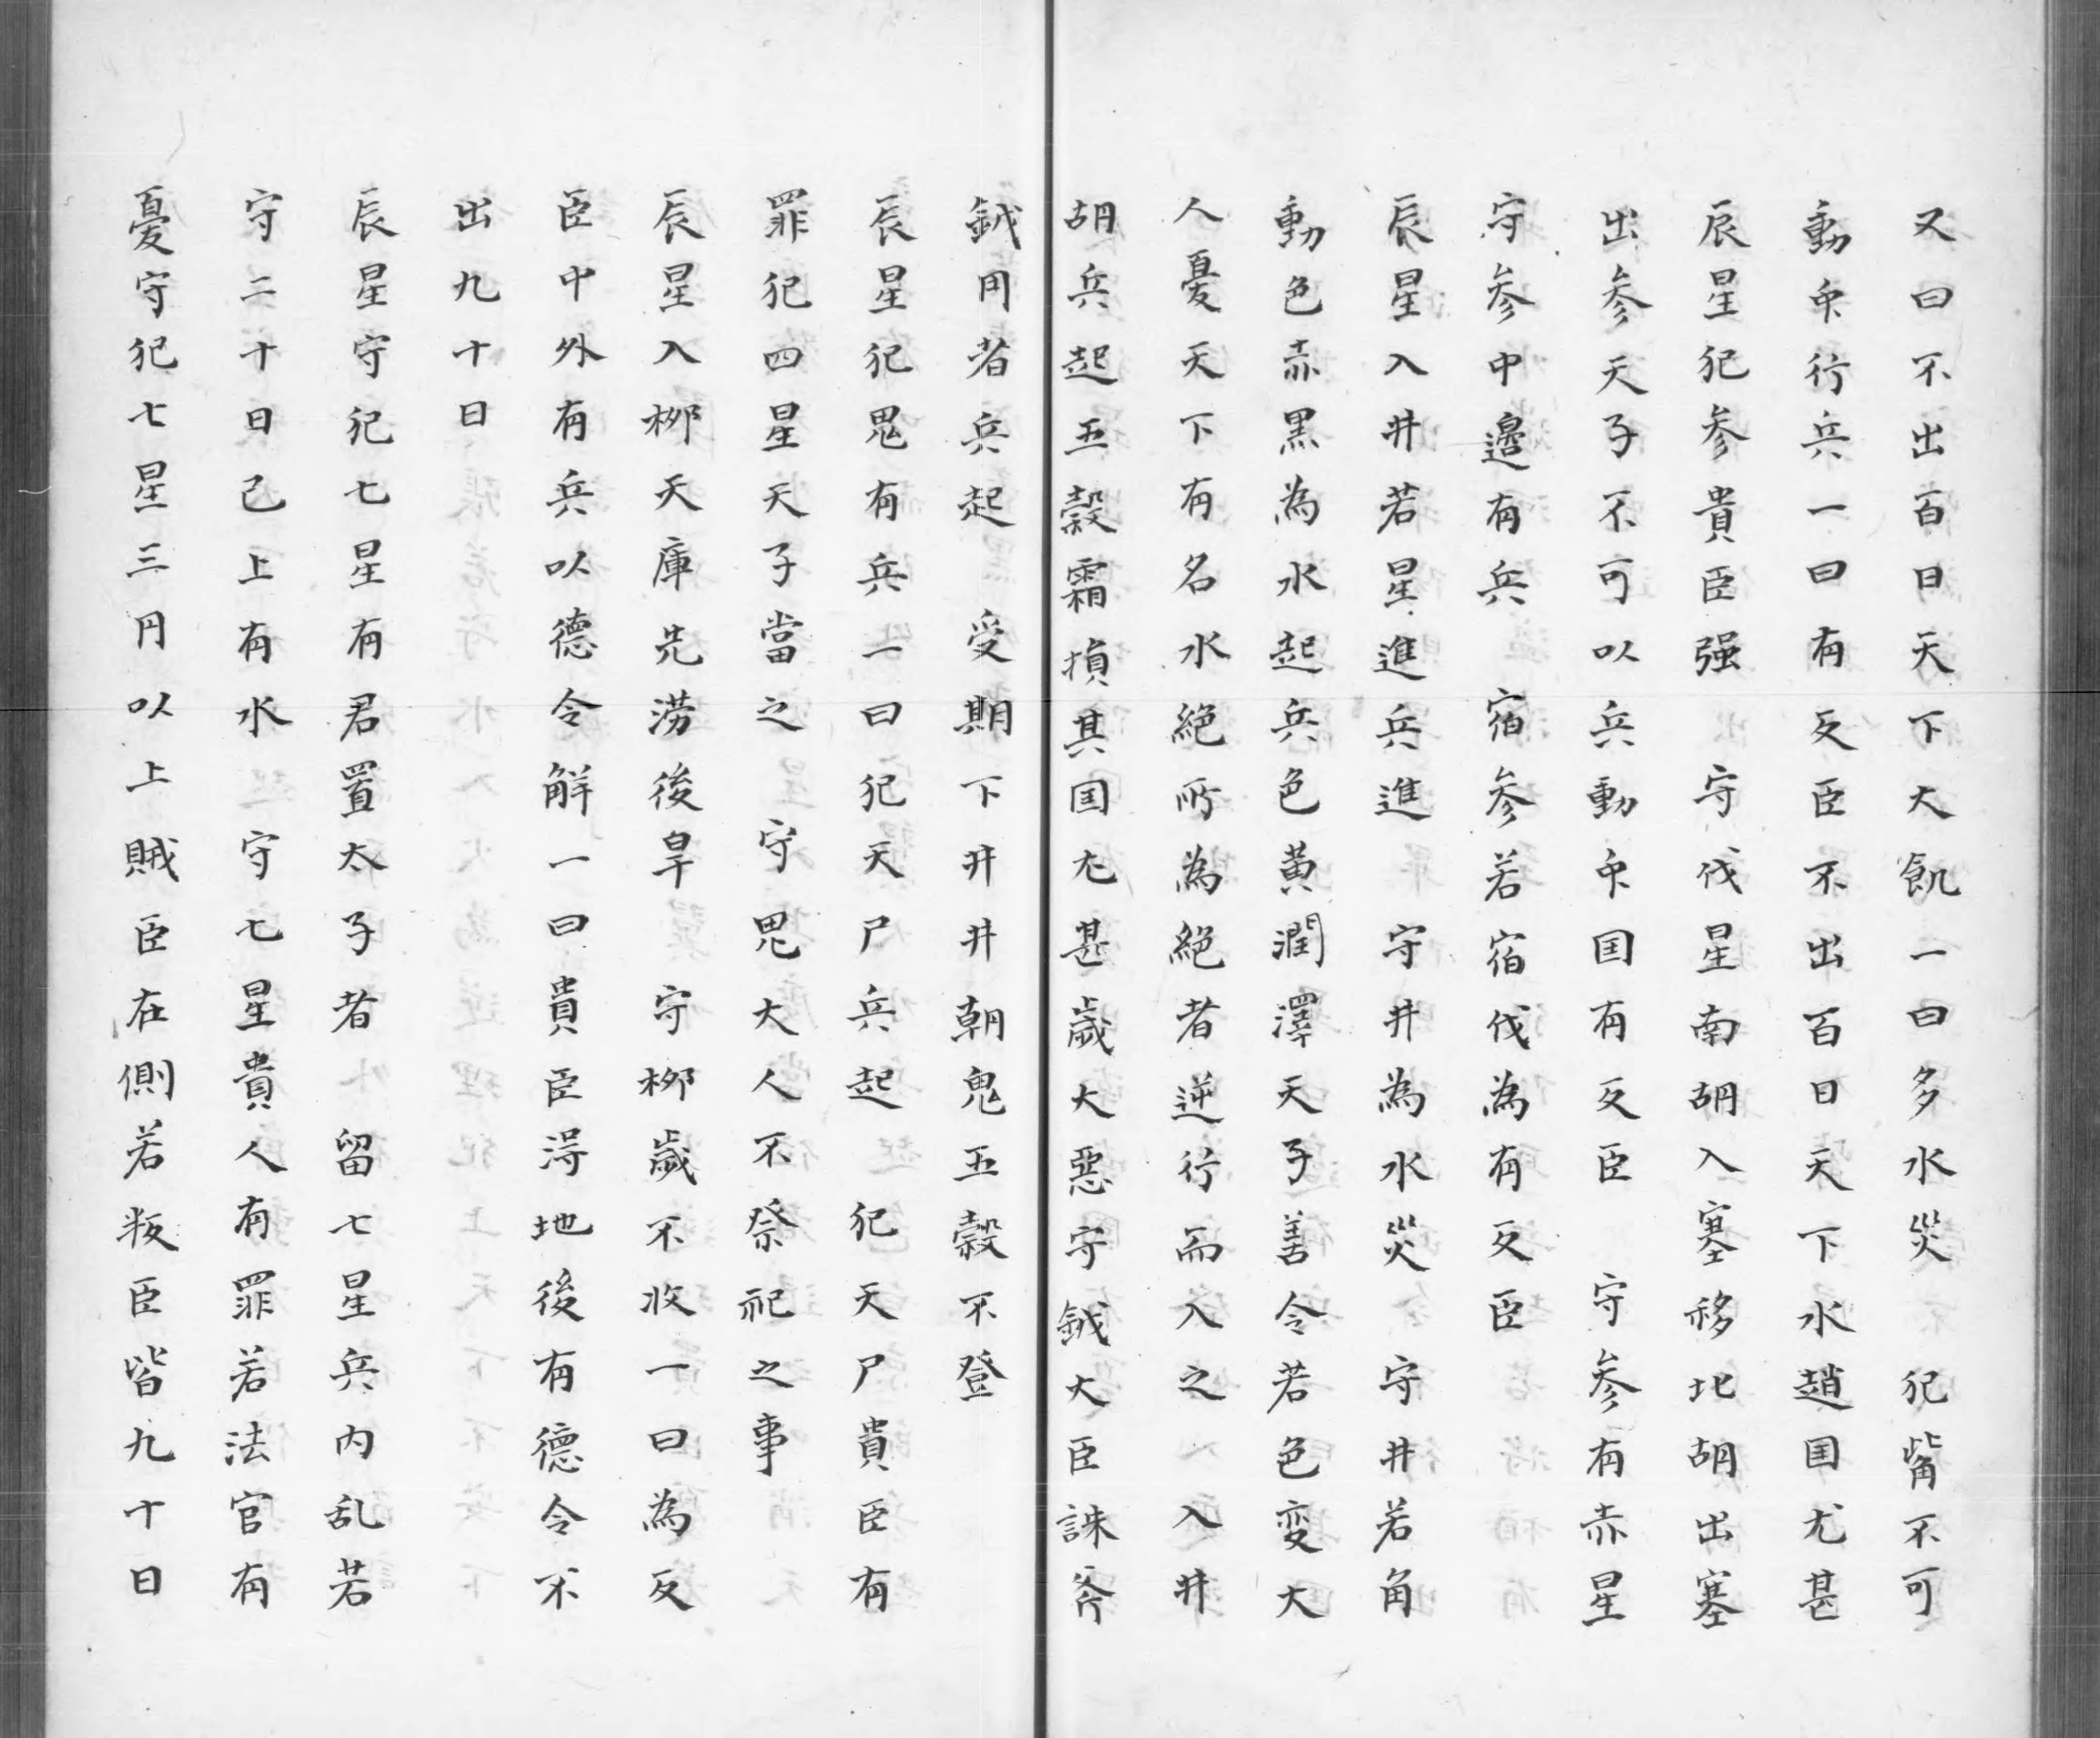 又曰不出百日天下大飢一曰多水災　犯觜不可
動帀行兵一曰有反臣不出百日天下水趙国尤甚
辰星犯参貴臣强　守伐星南胡入塞移北胡出塞
出参天子不可以兵動帀国有反臣　守参有赤星
守参中邉有兵　宿参若宿伐為有反臣
辰星入井若星進兵進　守井為水災　守井若角
動色赤黒為水起兵色黄潤澤天子善令若色変大
人憂天下有名水絶所為絶者逆行而入之　入井
胡兵起五穀霜損其国尤甚歳大惡守鉞大臣誅斧
鉞用者兵起　受期下井井朝鬼五穀不登
辰星犯鬼有兵一曰犯天尸兵起　犯天尸貴臣有
罪犯四星天子當之　守鬼大人不祭祀之事
辰星入栁天庫先澇後旱　守栁歳不收一曰為反
臣中外有兵以德令解一曰貴臣淂地後有德令不
出九十日
辰星守犯七星有君置太子者　留七星兵内乱若
守二十日已上有水　守七星貴人有罪若法官有
憂守犯七星三月以上賊臣在側若叛臣皆九十日